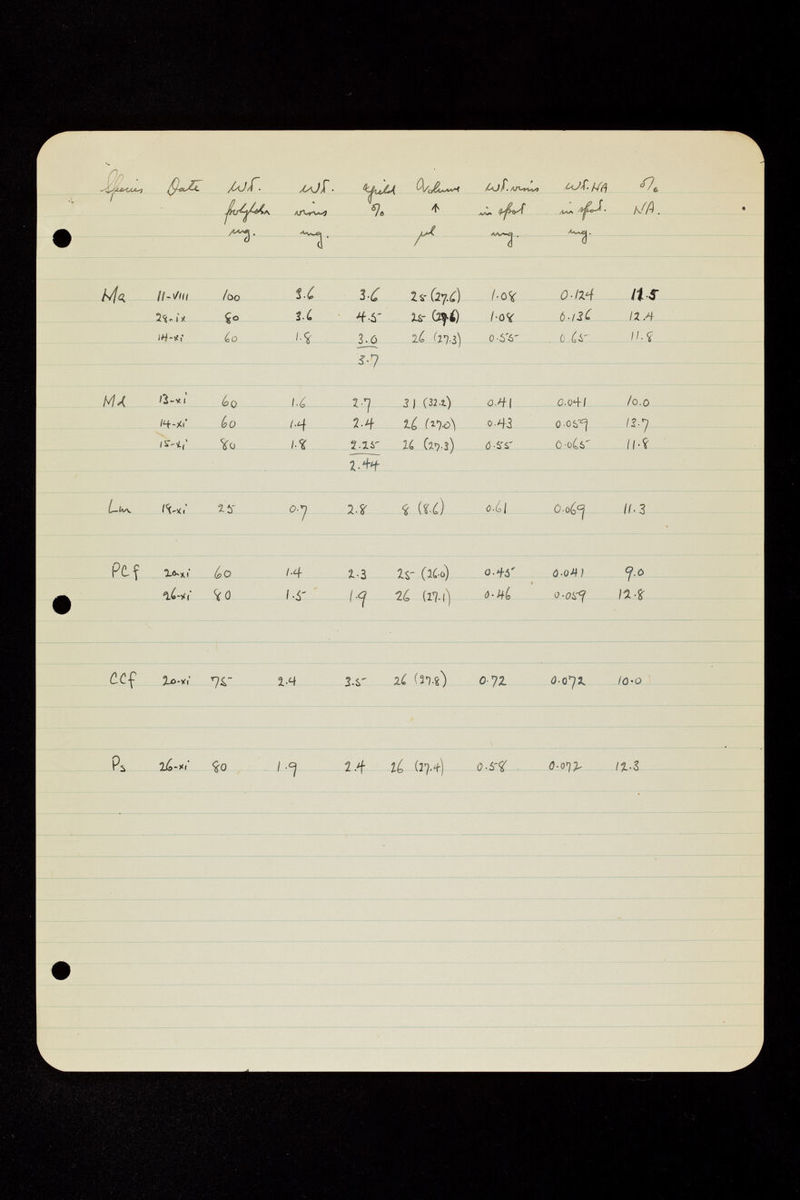 Species Date Wt. Wt. Yield Volume Wt. virus Wt. NA %
polyhedra virus % ↑ in spot in spot. NA.
mg. mg. µl mg. mg.
Ma 11-VIII 100 3.6 3.6 25 (27.6) 1.08 0.124 11.5
28-ix 80 3.6 4.5 25 (27.6) 1.08 0.136 12.4
14-xi 60 1.8 3.0 26 (27.3) 0.55 0.65 11.8
3.7
Md 13-xi 60 1.6 2.7 31 (32.2) 0.41 0.041 10.0
14-xi 60 1.4 2.4 26 (27.0) 0.43 0.059 13.7
15-xi 80 1.8 2.25 26 (27.3) 0.55 0.065 11.8
2.44
Lm 18-xi 25 0.7 2.8 8 (8.6) 0.61 0.069 11.3
PCf 20-xi 60 1.4 2.3 25 (26.0) 0.45 0.041 9.0
26-xi 80 1.5 1.9 26 (27.1) 0.46 0.059 12.8
CCf 20-xi 75 2.4 3.5 26 (27.8) 0.72 0.072 10.0
Ps 26-xi 80 1.9 2.4 26 (27.4) 0.58 0.072 12.3